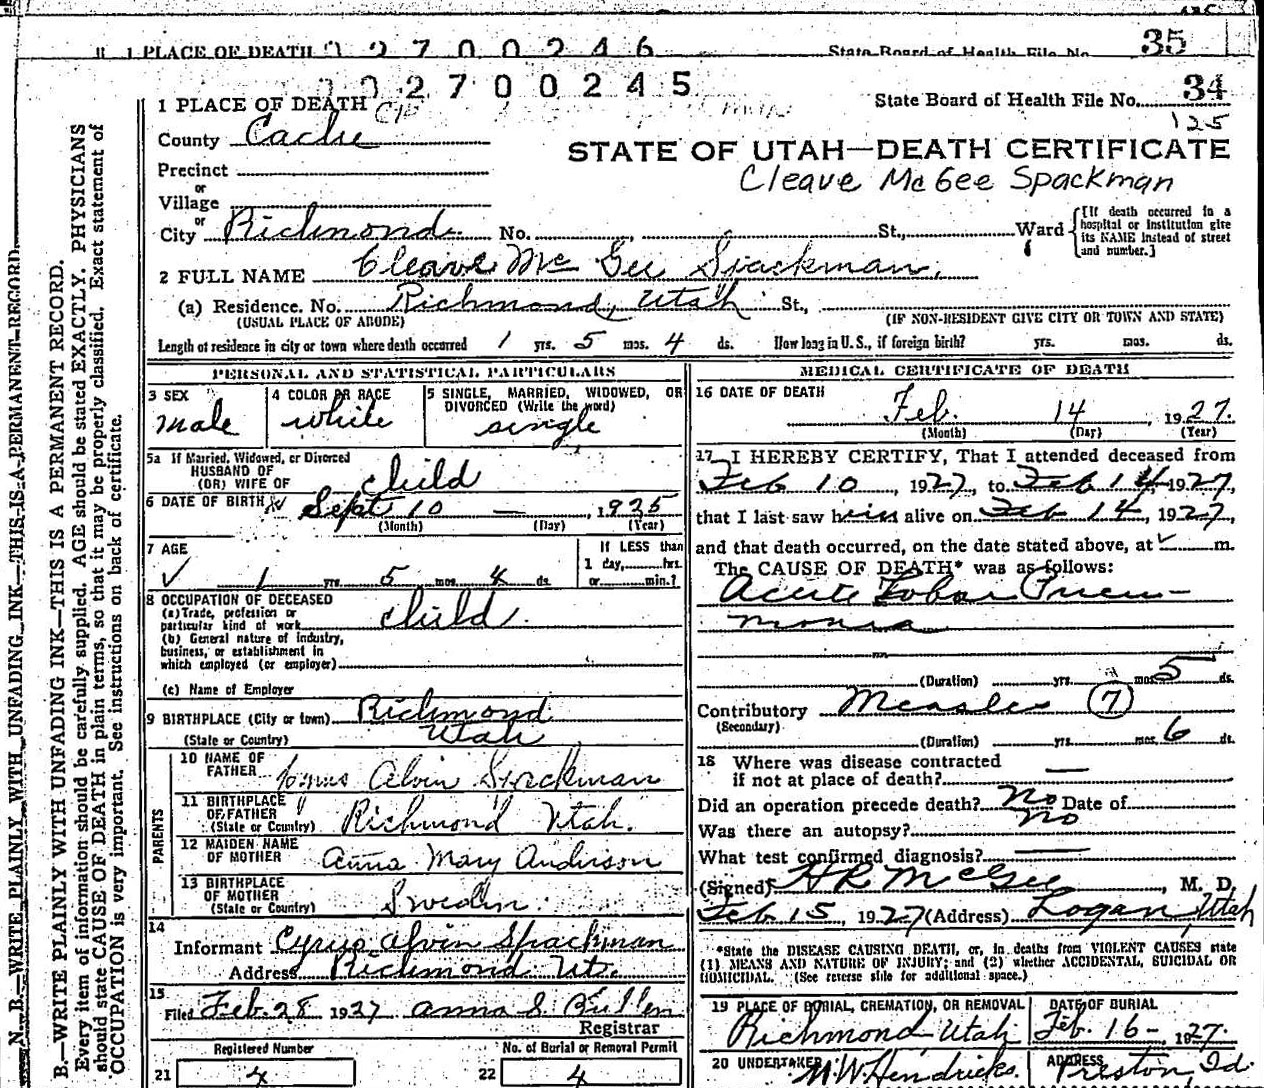 8 1 PLACE OF DEATH 02700246 State Board of Health File No. 35
002700245
1 PLACE OF DEATH State Board of Health File No. 34
125
County Cache
STATE OF UTAH—DEATH CERTIFICATE
Precinct
Cleave McGee Spackman
or
Village
or
City Richmond No. St., Ward {[If death occurred in a hospital or institution give its NAME instead of street and number.]
2 FULL NAME Cleave Mc Gee Spackman,
(a) Residence. No. Richmond, Utah St.,
(USUAL PLACE OF ABODE) (IF NON-RESIDENT GIVE CITY OR TOWN AND STATE)
Length of residence in city or town where death occurred 1 yrs. 5 mos. 4 ds. How long in U.S., if foreign birth? yrs. mos. ds.
PERSONAL AND STATISTICAL PARTICULARS
3 SEX
male
4 COLOR OR RACE
white
5 SINGLE, MARRIED, WIDOWED, OR
DIVORCED (Write the word)
single
5a If Married, Widowed, or Divorced
HUSBAND OF
(OR) WIFE OF child
6 DATE OF BIRTH Sept 10 — , 1925
(Month) (Day) (Year)
7 AGE
1 yrs. 5 mos. 4 ds.
If LESS than
1 day, hrs.
or min.?
8 OCCUPATION OF DECEASED
(a) Trade, profession or
particular kind of work child
(b) General nature of industry,
business, or establishment in
which employed (or employer)
(c) Name of Employer
9 BIRTHPLACE (City or town) Richmond
(State or Country) Utah
PARENTS
10 NAME OF
FATHER Cyrus Alvin Spackman
11 BIRTHPLACE
OF FATHER
(State or Country) Richmond Utah.
12 MAIDEN NAME
OF MOTHER Anna Mary Anderson
13 BIRTHPLACE
OF MOTHER
(State or Country) Sweden.
14
Informant Cyrus Alvin Spackman
Address Richmond Ut.
15
Filed Feb. 28 1927 Anna S. Bullen
Registrar
Registered Number
21 4
No. of Burial or Removal Permit
22 4
MEDICAL CERTIFICATE OF DEATH
16 DATE OF DEATH
Feb. 14 1927.
(Month) (Day) (Year)
17 I HEREBY CERTIFY, That I attended deceased from
Feb 10, 1927, to Feb 14, 1927,
that I last saw him alive on Feb 14, 1927,
and that death occurred, on the date stated above, at m.
The CAUSE OF DEATH* was as follows:
Acute Lobar Pneu-
monia
(Duration) yrs. mos. 5 ds.
Contributory Measles (7)
(Secondary)
(Duration) yrs. mos. 6 ds.
18 Where was disease contracted
if not at place of death? —
Did an operation precede death? No Date of
Was there an autopsy? no
What test confirmed diagnosis? —
(Signed) H R McGee, M. D.
Feb 15, 1927 (Address) Logan, Utah
*State the DISEASE CAUSING DEATH, or, in deaths from VIOLENT CAUSES, state
(1) MEANS AND NATURE OF INJURY; and (2) whether ACCIDENTAL, SUICIDAL OR
HOMICIDAL. (See reverse side for additional space.)
19 PLACE OF BURIAL, CREMATION, OR REMOVAL
Richmond Utah
DATE OF BURIAL
Feb. 16 - 1927.
20 UNDERTAKER
M.W. Hendricks.
ADDRESS
Preston, Id.
N. B.—WRITE PLAINLY WITH UNFADING INK—THIS IS A PERMANENT RECORD.
B.—WRITE PLAINLY WITH UNFADING INK—THIS IS A PERMANENT RECORD.
Every item of information should be carefully supplied. AGE should be stated EXACTLY. PHYSICIANS
should state CAUSE OF DEATH in plain terms, so that it may be properly classified. Exact statement of
OCCUPATION is very important. See instructions on back of certificate.